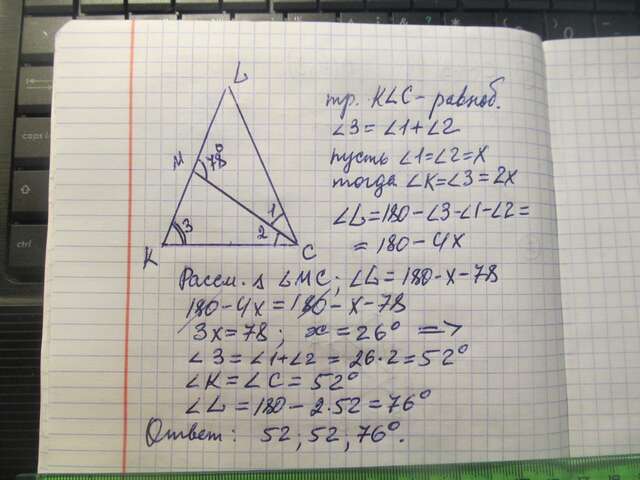 L
M
78°
1
2
3
K
C
тр. KLC - равноб.
∠3 = ∠1+∠2
пусть ∠1=∠2=x
тогда ∠K=∠3=2x
∠L=180-∠3-∠1-∠2=
= 180-4x
Рассм. Δ LMC; ∠L=180-x-78
180-4x=180-x-78
3x=78; x=26° =>
∠3=∠1+∠2=26·2=52°
∠K=∠C=52°
∠L=180-2·52=76°
Ответ: 52; 52; 76°.
caps
ctrl